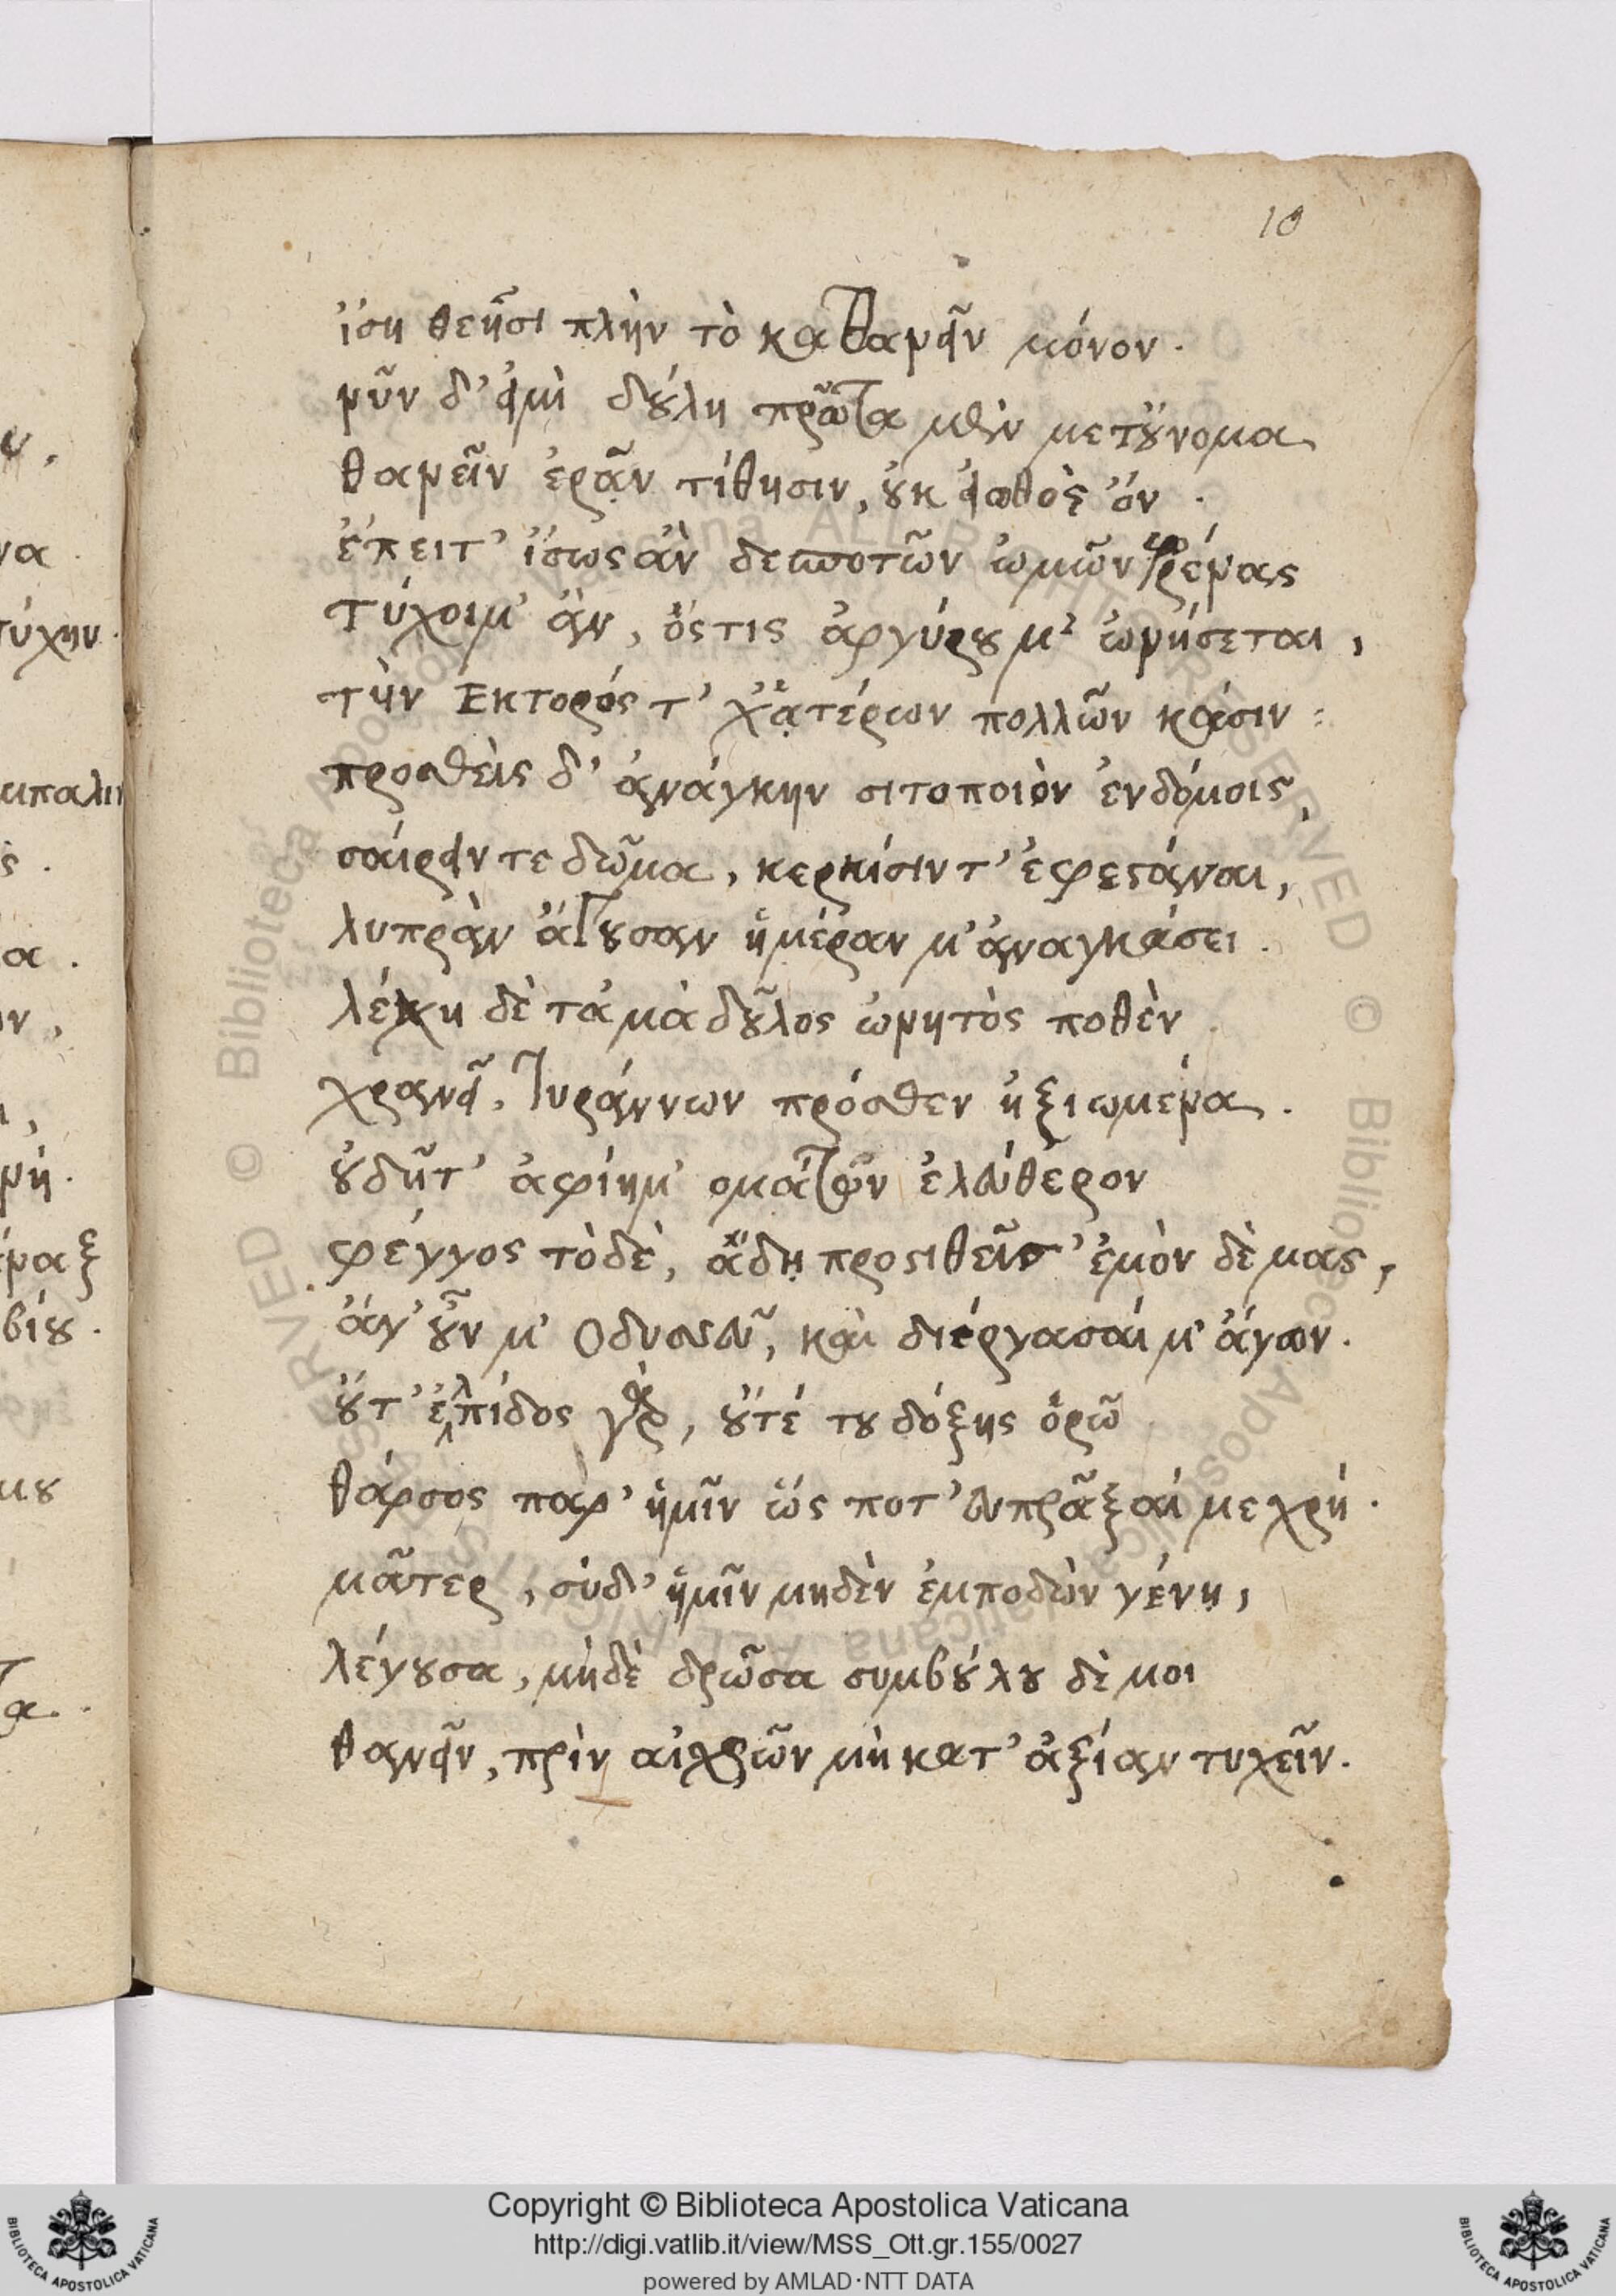 10
ἴση θεῇσι πλὴν τὸ κατθανεῖν μόνον.
νῦν δ' εἰμὶ δούλη πρῶτα μὲν με τοὔνομα
θανεῖν ἐρᾶν τίθησιν, οὐκ εἰωθὸς ὄν.
ἔπειτ' ἴσως ἂν δεσποτῶν ὠμῶν φρένας
τύχοιμ' ἂν, ὅςτις ἀργύρου μ' ὠνήσεται,
τὴν Εκτορός τ' χἀτέρων πολλῶν κάσιν:
προσθεὶς δ' ἀνάγκην σιτοποιὸν ἐνδόμοις,
σαίρειν τε δῶμα, κερκίσιν τ' ἐφεστάναι,
λυπρὰν ἄγουσαν ἡμέραν μ' ἀναγκάσει.
λέχη δὲ τἀμὰ δοῦλος ὠνητὸς ποθὲν
χρανεῖ, τυράννων πρόσθεν ἠξιωμένα.
οὐδῆτ' ἀφίημ' ομάτων ἐλεύθερον
φέγγος τὸδὲ, ἅδῃ προστιθεῖσ' ἐμὸν δὲμας,
ἄγ' οὖν μ' Οδυσσεῦ, καὶ διέργασαί μ' ἄγων.
οὔτ' ἐλπίδος γὰρ, οὔτέ του δόξης ὁρῶ
θάρσος παρ' ἡμῖν ὥς ποτ' εὐπρᾶξαί με χρή.
μᾶτερ, σὺδ' ἡμῖν μηδὲν ἐμποδὼν γένῃ,
λέγουσα, μὴδὲ δρῶσα συμβούλου δὲ μοι
θανεῖν, πρὶν αἰχρῶν μὴ κατ' ἀξίαν τυχεῖν.
Copyright © Biblioteca Apostolica Vaticana
http://digi.vatlib.it/view/MSS_Ott.gr.155/0027
powered by AMLAD·NTT DATA